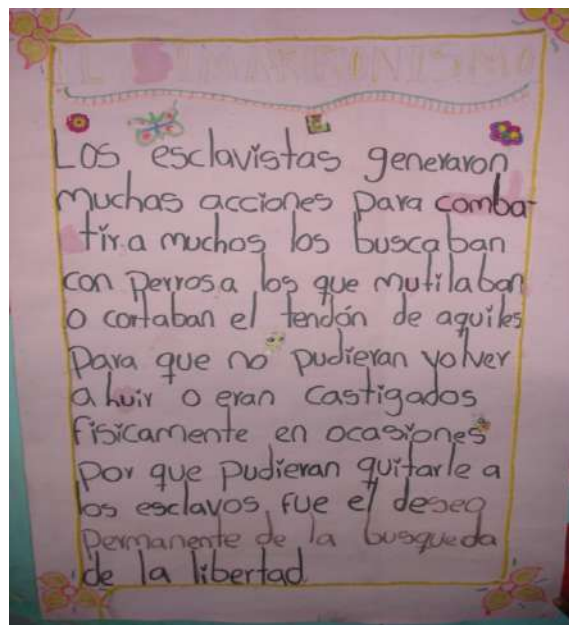 EL SIMARRONISMO
Los esclavistas generaron
muchas acciones para comba-
tir.a muchos los buscaban
con perros.a los que mutilaban
o cortaban el tendón de aquiles
para que no pudieran volver
a huir o eran castigados
fisicamente en ocasiones
por que pudieran quitarle a
los esclavos, fue el deseo
permanente de la busqueda
de la libertad